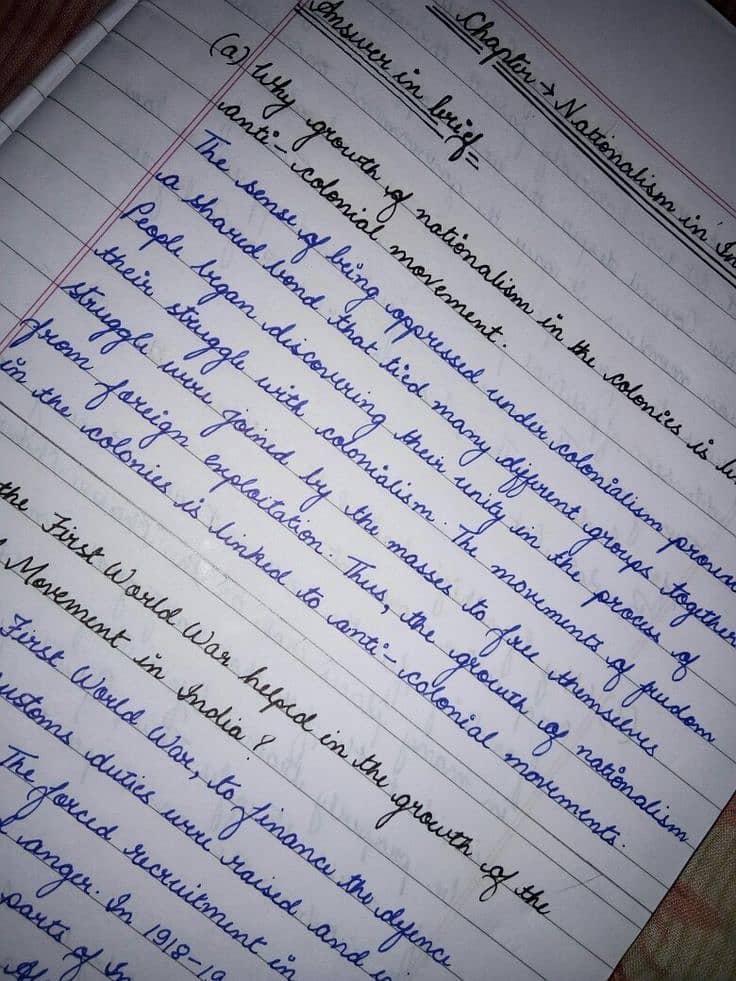 Chapter → Nationalism in In
Answer in brief=
(a) Why growth of nationalism in the colonies is
anti-colonial movement.
The sense of being oppressed under colonialism
a shared bond that tied many different groups together
People began discovering their unity in the process of
their struggle with colonialism. The movements of
struggle were joined by the masses to free themselves
from foreign exploitation. Thus, the growth of nationalism
in the colonies is linked to anti-colonial movements.
the First World War helped in the growth of the
Movement in India?
First World War, to finance the defence
ustoms duties were raised and
The forced recruitment in
anger. In 1918-19
parts of In